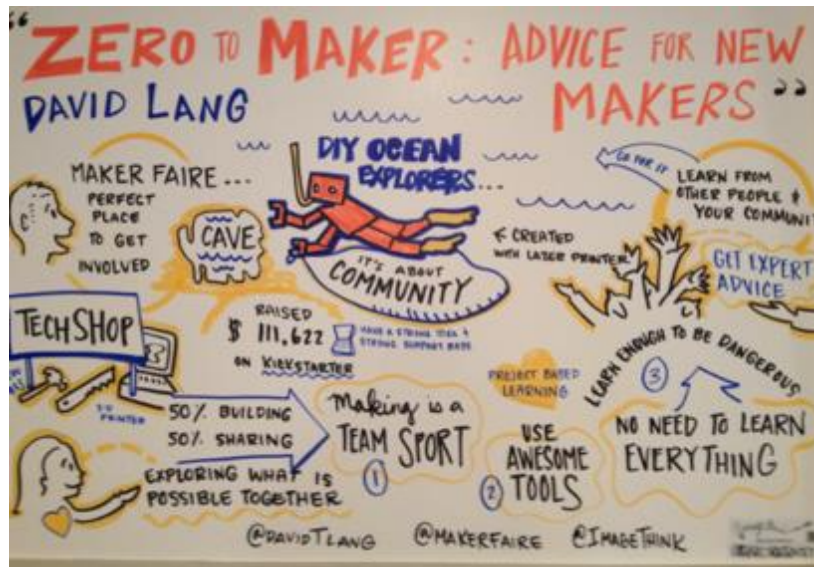 "ZERO TO MAKER: ADVICE FOR NEW
MAKERS"
DAVID LANG
MAKER FAIRE...
PERFECT
PLACE
TO GET
INVOLVED
CAVE
DIY OCEAN
EXPLORERS...
IT'S ABOUT
COMMUNITY
CREATED
WITH LASER PRINTER
GO FOR IT
LEARN FROM
OTHER PEOPLE &
YOUR COMMUNI
GET EXPERT
ADVICE
TECHSHOP
3D PRINTER
RAISED
$ 111,622
ON KICKSTARTER
HAVE A STRONG IDEA &
STRONG SUPPORT BASE
50% BUILDING
50% SHARING
EXPLORING WHAT IS
POSSIBLE TOGETHER
Making is a
TEAM SPORT
1
PROJECT BASED
LEARNING
USE
AWESOME
TOOLS
2
LEARN ENOUGH TO BE DANGEROUS
3
NO NEED TO LEARN
EVERYTHING
@DAVIDTLANG
@MAKERFAIRE
@IMAGETHINK